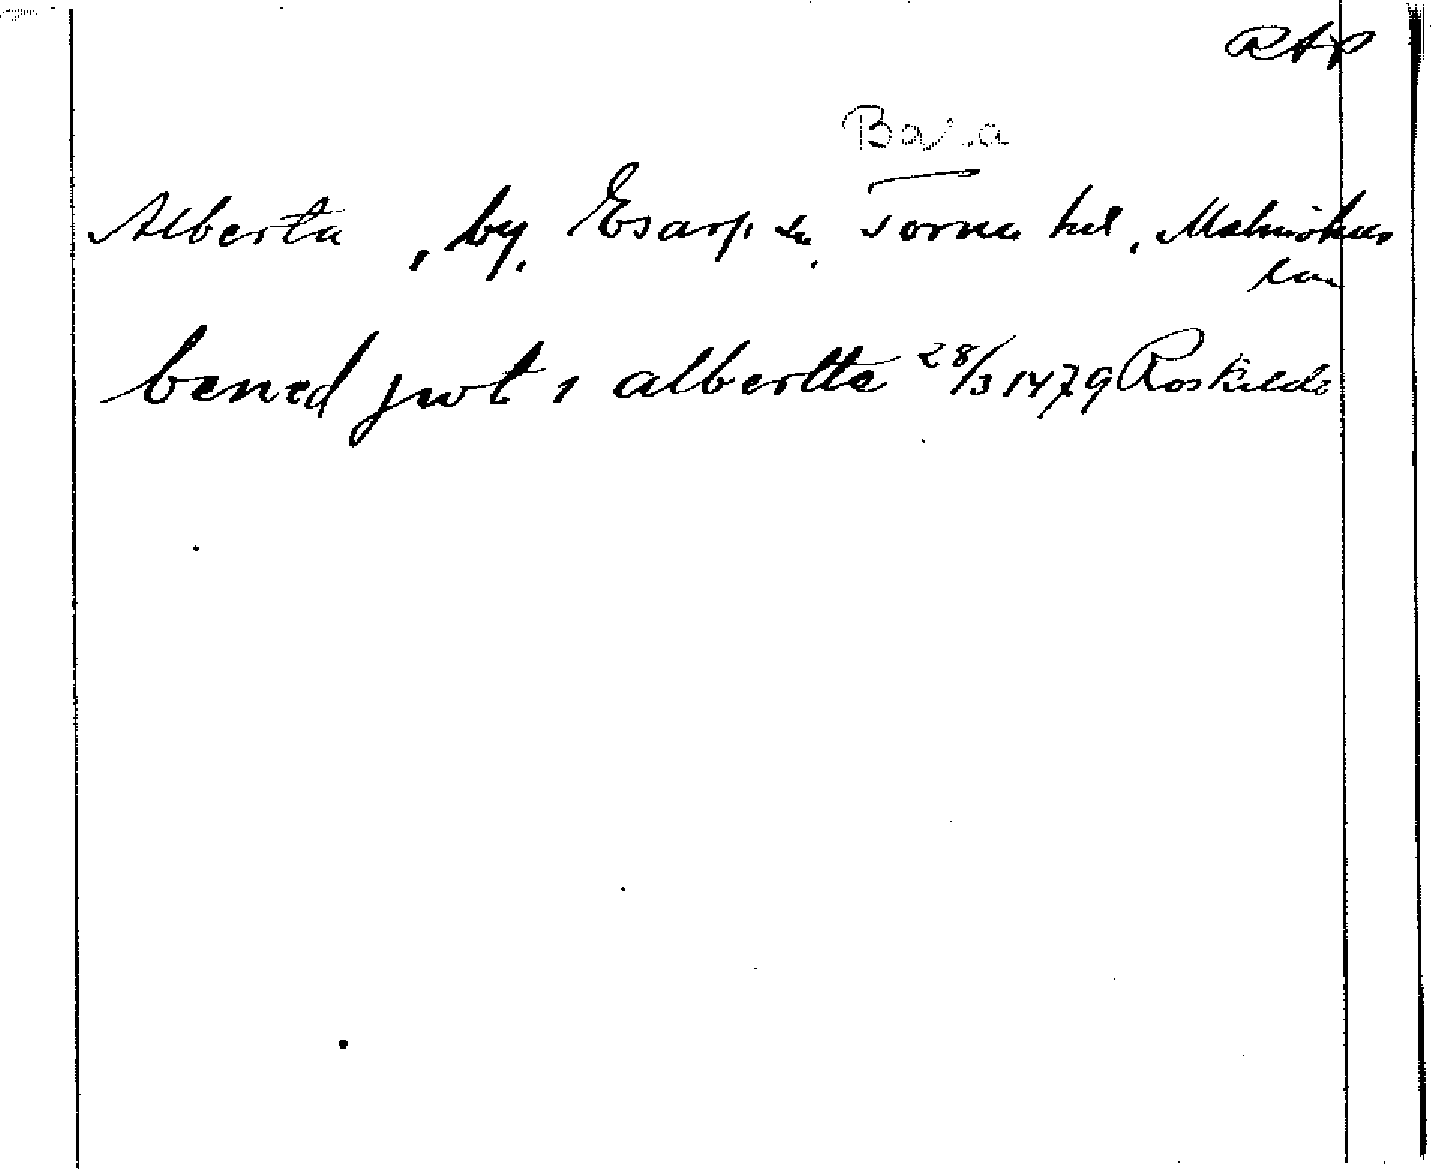 RAP
Bara
Alberta, by, Esarp sn, Torna hd, Malmöhus
län
bened jwt i albertte 28/3 1479 Roskilde